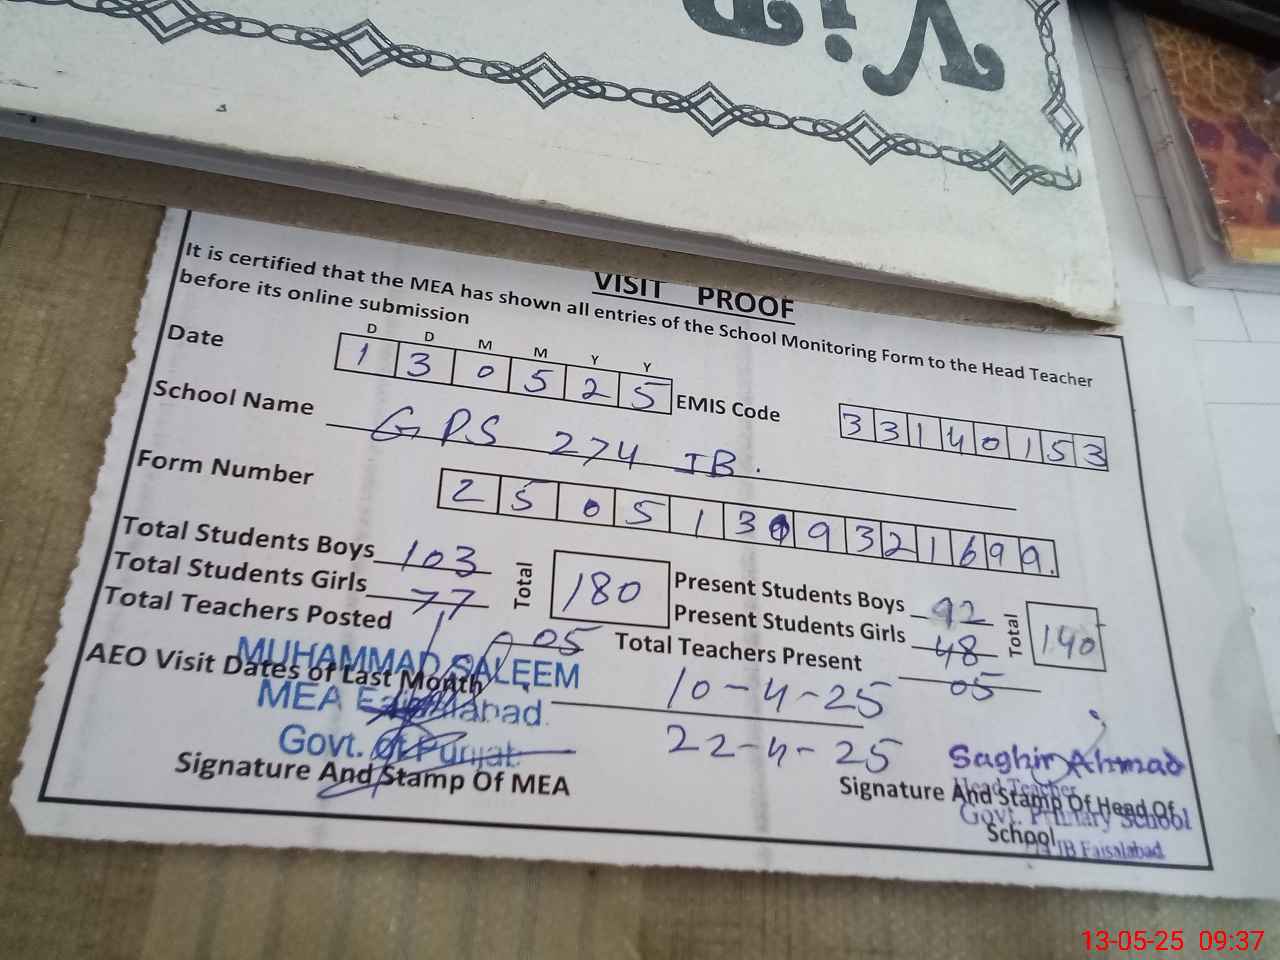 VISIT PROOF
It is certified that the MEA has shown all entries of the School Monitoring Form to the Head Teacher
before its online submission
D D M M Y Y
Date 1 3 0 5 2 5 EMIS Code 3 3 1 4 0 1 5 3
School Name GPS 274 JB.
Form Number 2 5 0 5 1 3 0 9 3 2 1 6 9 9.
Total Students Boys 103 Total 180 Present Students Boys 92 Total 140
Total Students Girls 77 Present Students Girls 48
Total Teachers Posted 05 Total Teachers Present 05
AEO Visit Dates of Last Month 10-4-25
22-4-25
MUHAMMAD SALEEM
MEA Faisalabad
Govt. of Punjab
Signature And Stamp Of MEA
Signature And Stamp Of Head Of
School
Saghir Ahmad
Head Teacher
Govt. Primary School
JB Faisalabad
13-05-25 09:37